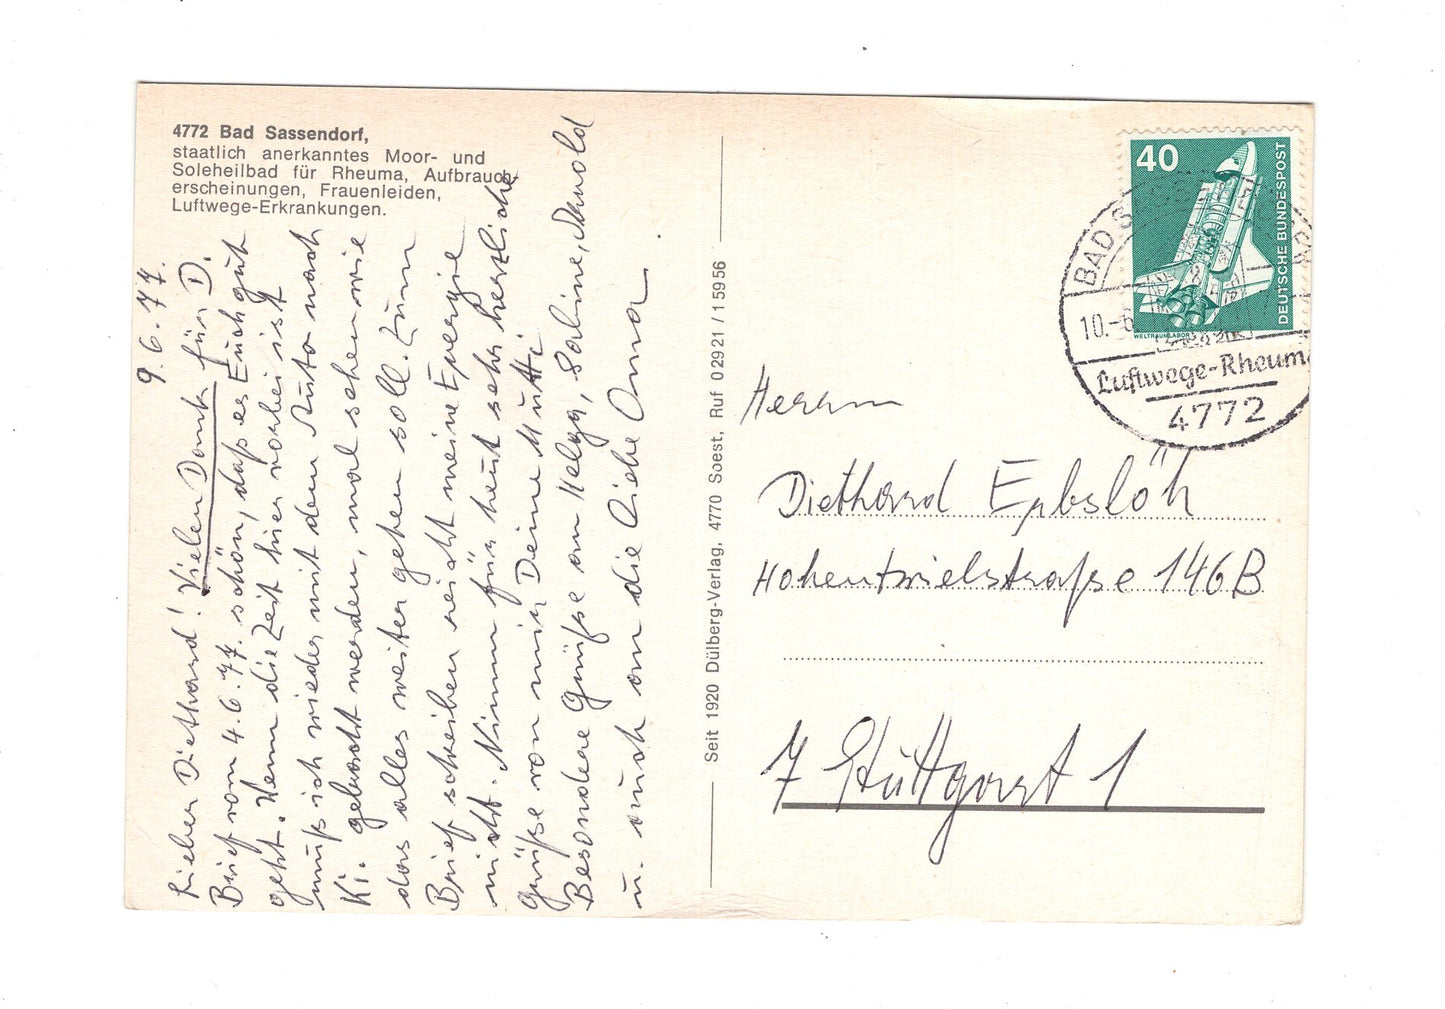 4772 Bad Sassendorf,
staatlich anerkanntes Moor- und
Soleheilbad für Rheuma, Aufbrauch-
erscheinungen, Frauenleiden,
Luftwege-Erkrankungen.
9.6.77.
Lieber Diethard! Vielen Dank für D.
Brief vom 4.6.77. schön, daß es Euch gut
geht. Wenn die Zeit hier vorbei ist
muß ich wieder mit dem Auto nach
Ki. gebracht werden, mal sehen wie
das alles weiter gehen soll. Zum
Brief schreiben reicht meine Energie
nicht. Nimm für heut sehr herzliche
Grüße von mir Deine Mutti
Besondere Grüße an Helga, Sabine, Arnold
u. auch an die liebe Oma
Seit 1920 Dülberg-Verlag, 4770 Soest, Ruf 0 29 21 / 1 59 56
40
DEUTSCHE BUNDESPOST
WELTRAUMLABOR
BAD
10.-6
Luftwege-Rheuma
4772
Herrn
Diethard Epbslöh
Hohentwielstraße 146B
7 Stuttgart 1